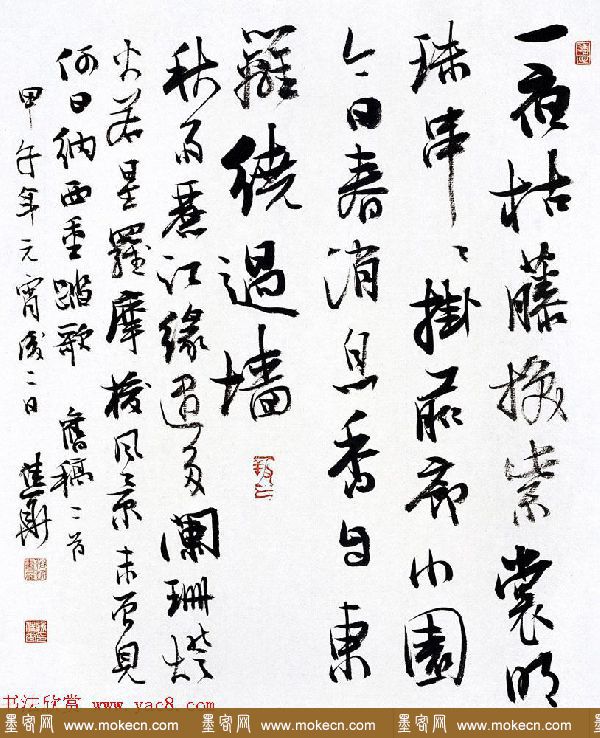 一夜枯藤换紫裳明
珠串々掛前廊小園
今日春消息香自東
籬繞過墻
秋雨麗江緣遇多闌珊燈
火若星羅摩梭風景未曾見
何日納西重踏歌 舊稿二首
甲午年元宵後二日
书法欣赏 www.yac8.com
墨客网 www.mokecn.com 墨客网 www.mokecn.com 墨客网 www.mokecn.com